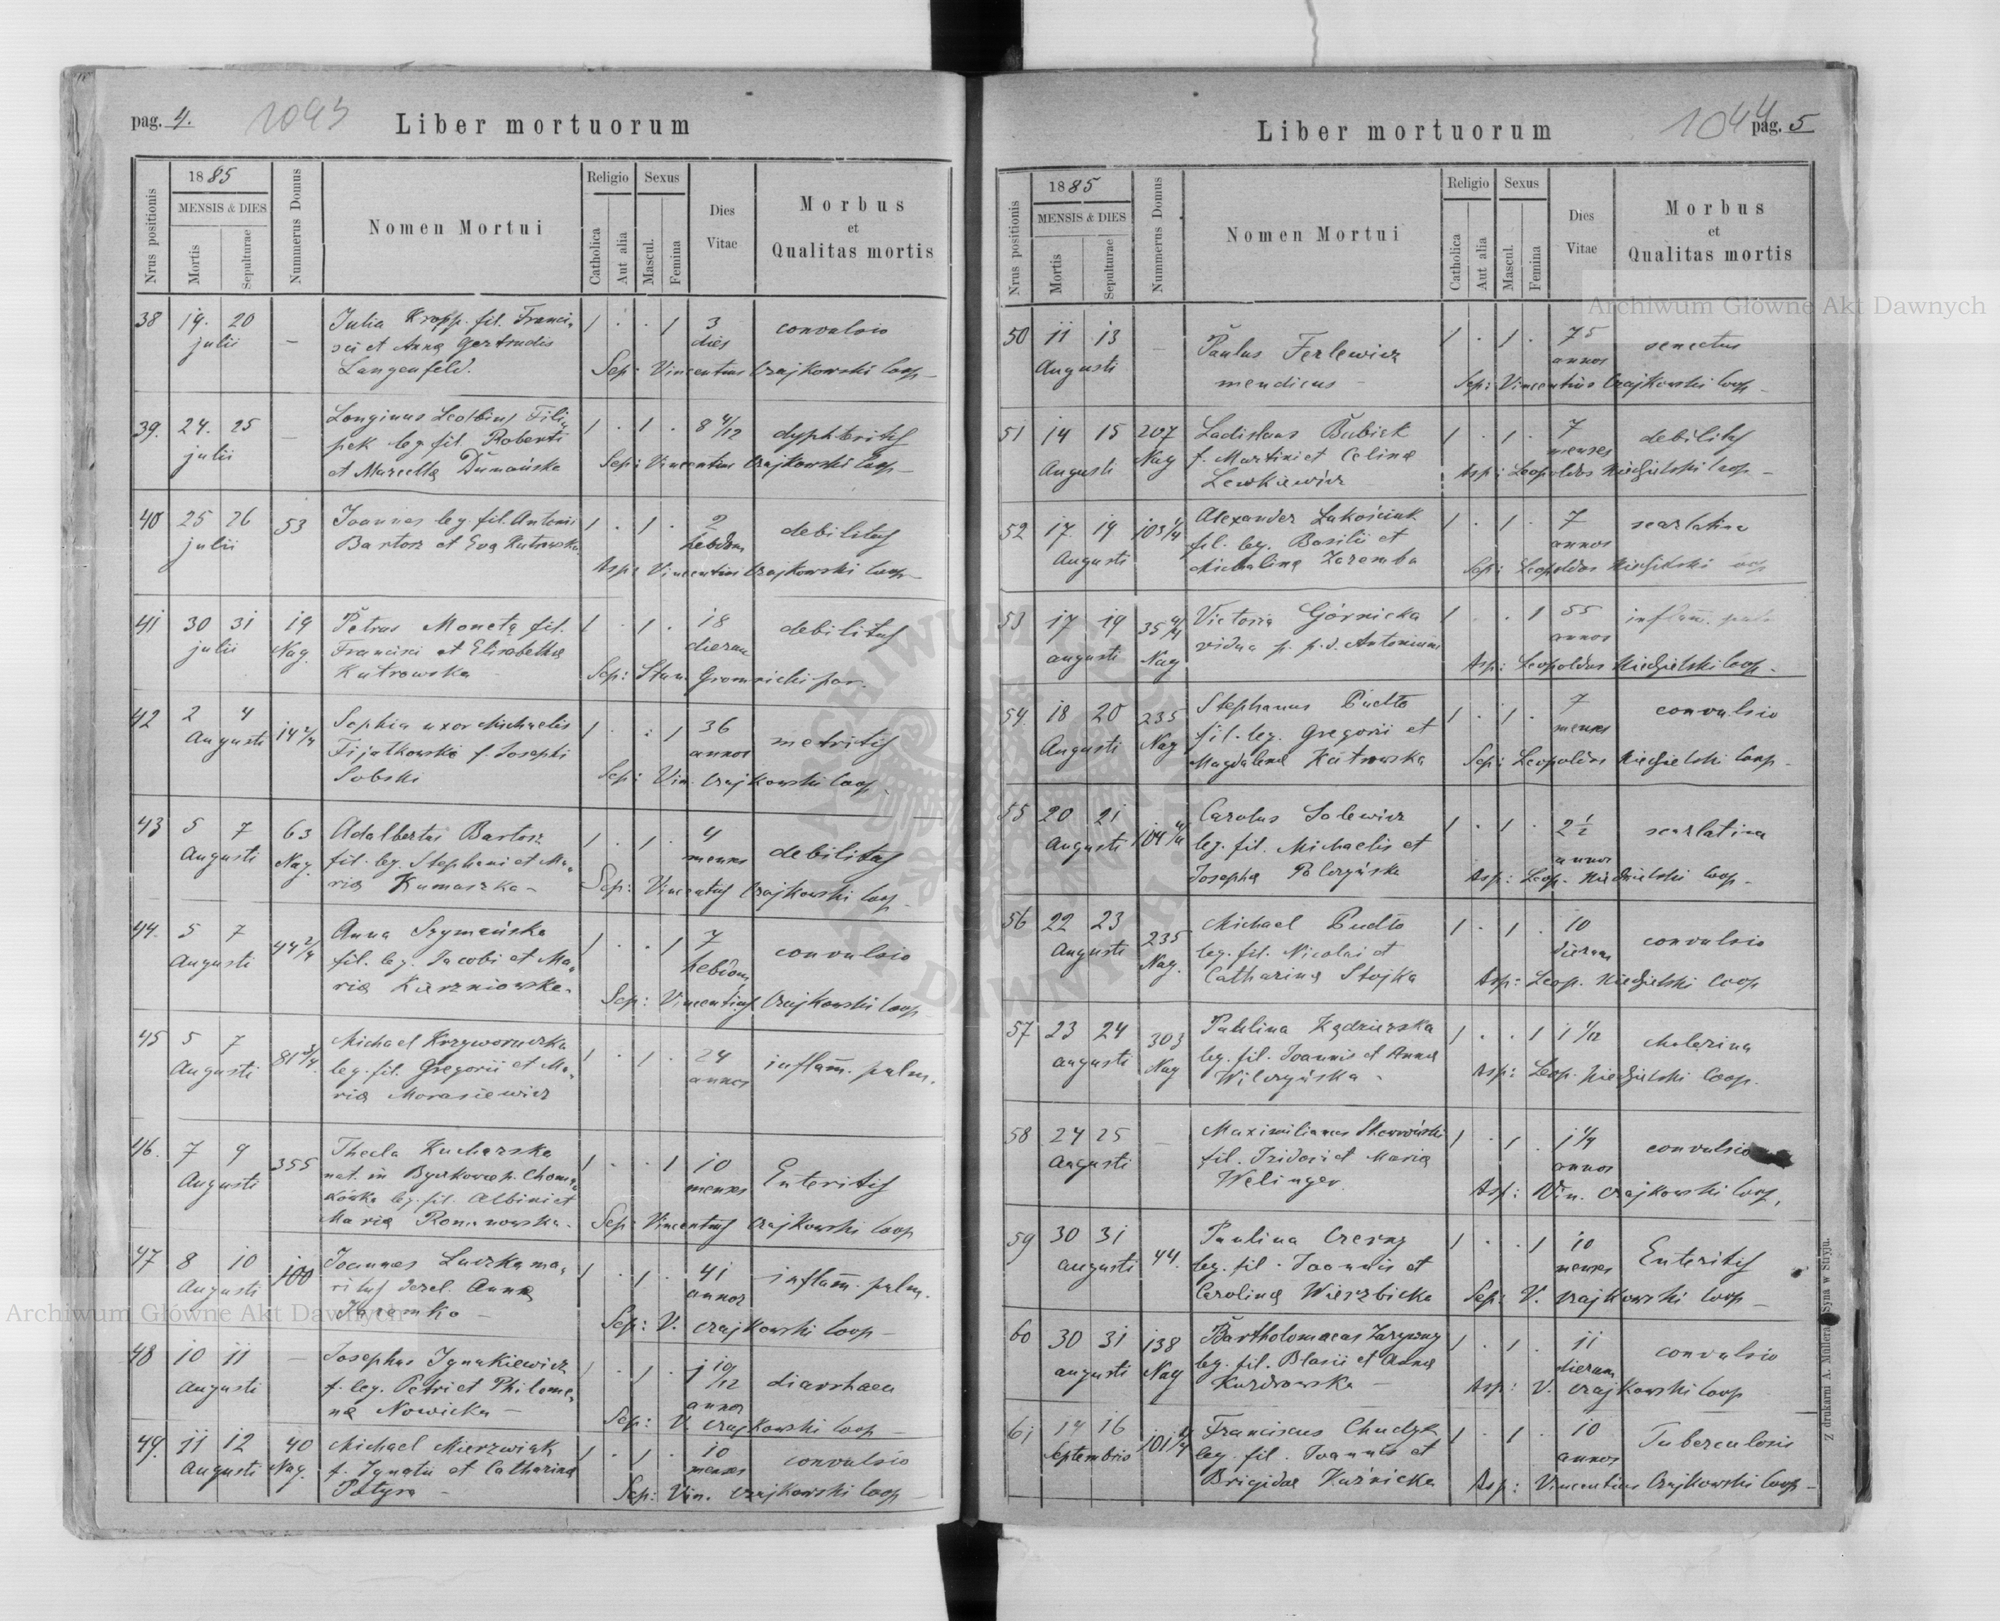 pag. 4.
1043
Liber mortuorum
Nrus positionis
1885
MENSIS & DIES
Mortis
Sepulturae
Nummerus Domus
Nomen Mortui
Religio
Catholica
Aut alia
Sexus
Mascul.
Femina
Dies
Vitae
Morbus
et
Qualitas mortis
38 19. 20 Julia Kropp. fil. Franci- 1 . . 1 3 convulsio
julii — sci et Anna Gertrudis dies
Langenfeld. Sep: Vincentius Czajkowski Coop—
39. 24. 25 — Longinus Filip- 1 . 1 . 8 4/12 dyphteritis
julii pek leg fil. Roberti
et Marcella Dumańska Sep: Vincentius Czajkowski Coop—
40 25 26 53 Joannes leg. fil. Antonii 1 . 1 . 2 debilitas
julii Bartosz et Eva Kutrowska hebdom
Asp: Vincentius Czajkowski Coop—
41 30 31 19 Petrus Moneta fil. 1 . 1 . 18 debilitas
julii Nag. Francisci et Elisabetha dierum
Kutrowska Sep: Stan. Gromnicki par.
42 2 4 14 2/4 Sophia uxor Michaelis 1 . . 1 36 metritis
Augusti Fijałkowski f. Josephi annos
Sobski Sep: Vin. Czajkowski Coop.
43 5 7 63 Adalbertus Bartosz 1 . 1 . 4 debilitas
Augusti Nag. fil. leg. Stephani et Ma- menses
ria Kumaszka — Sep: Vincentius Czajkowski Coop
44. 5 7 44 2/4 Anna Szymańska 1 . . 1 7 convulsio
Augusti fil. leg. Jacobi et Ma- hebdom
ria Sep: Vincentius Czajkowski Coop
45 5 7 81 3/4 Michael 1 . 1 . 24 inflam. pulm.
Augusti leg. fil. Gregorii et Ma- annos
ria Morasiewicz
46. 7 9 355 Thecla Kucharska 1 . . 1 10 Enteritis
Augusti nat. in menses
leg. fil. Albini et
Maria Romanowska. Sep: Vincentius Czajkowski Coop
47 8 10 100 Joannes Luczka ma- 1 . 1 . 41 inflam. pulm.
Augusti ritus derel. Anna annos
Jaremko — Sep: V. Czajkowski Coop—
48 10 11 — Josephus Ignakiewicz 1 . 1 . 1 10/12 diarrhaea
Augusti f. leg. Petri et Philome- annos
na Nowicka — Sep: V. Czajkowski Coop—
49. 11 12 40 Michael Mierzwiak 1 . 1 . 10 convulsio
Augusti Nag. f. Ignatii et Catharina menses
Patyra — Sep: Vin. Czajkowski Coop—
1044
pag. 5
Liber mortuorum
Nrus positionis
1885
MENSIS & DIES
Mortis
Sepulturae
Nummerus Domus
Nomen Mortui
Religio
Catholica
Aut alia
Sexus
Mascul.
Femina
Dies
Vitae
Morbus
et
Qualitas mortis
50 11 13 — Paulus Ferlewicz 1 . 1 . 75 senectus
Augusti mendicus — annos
Sep: Vincentius Czajkowski Coop—
51 14 15 207 Ladislaus Bubiak 1 . 1 . 7 debilitas
Augusti Nag f. Martini et Celina menses
Lewkiewicz Asp: Leopoldus Niedzielski Coop—
52 17. 19 103 1/4 Alexander Lakościuk 1 . 1 . 7 scarlatina
Augusti fil. leg. Basilii et annos
Michalina Zaremba Sep: Leopoldus Niedzielski coop
53 17 19 35 4/4 Victoria Górnicka 1 . . 1 55 inflam.
augusti Nag vidua p. p. d. Antonium annos
Asp: Leopoldus Niedzielski Coop.
54. 18 20 235 Stephanus Pudło 1 . 1 . 7 convulsio
Augusti Nag fil. leg. Gregorii et menses
Magdalena Kutrowska Sep: Leopoldus Niedzielski Coop.
55 20 21 104 4/4 Carolus Salewicz 1 . 1 . 2 1/2 scarlatina
Augusti leg. fil. Michaelis et annos
Josepha Pelczyńska Asp: Leop. Niedzielski Coop.
56 22 23 235 Michael Pudło 1 . 1 . 10 convulsio
Augusti Nag. leg. fil. Nicolai et dierum
Catharina Stojka Asp: Leop. Niedzielski Coop
57 23 24 303 Paulina Kędzierska 1 . . 1 1 1/12
augusti Nag leg. fil. Joannis et Anna
Wilczyńska - Asp: Leop. Niedzielski Coop.
58 24 25 — Maximilianus 1 . 1 . 1 1/4 convulsio
Augusti fil. Isidori et Maria annos
Welinger. Asp: Vin. Czajkowski Coop.
59 30 31 44. Paulina Czerny 1 . . 1 10 Enteritis
augusti leg. fil. Joannis et menses
Carolina Wierzbicka Sep: V. Czajkowski Coop—
60 30 31 138 Bartholomaeus Zaryczny 1 . 1 . 11 convulsio
augusti Nag leg. fil. Blasii et Anna dierum
Kuzdrowska — Asp: V. Czajkowski Coop
61 14 16 101 1/4 Franciscus Chudyk 1 . 1 . 10 Tuberculosis
Septembris leg. fil. Joannis et annos
Brigidae Kuźnicka Asp: Vincentius Czajkowski Coop—
Z drukarni A. Müllera Syna w Stryju.
Archiwum Główne Akt Dawnych
Archiwum Główne Akt Dawnych
ARCHIWUM GŁÓWNE AKT DAWNYCH